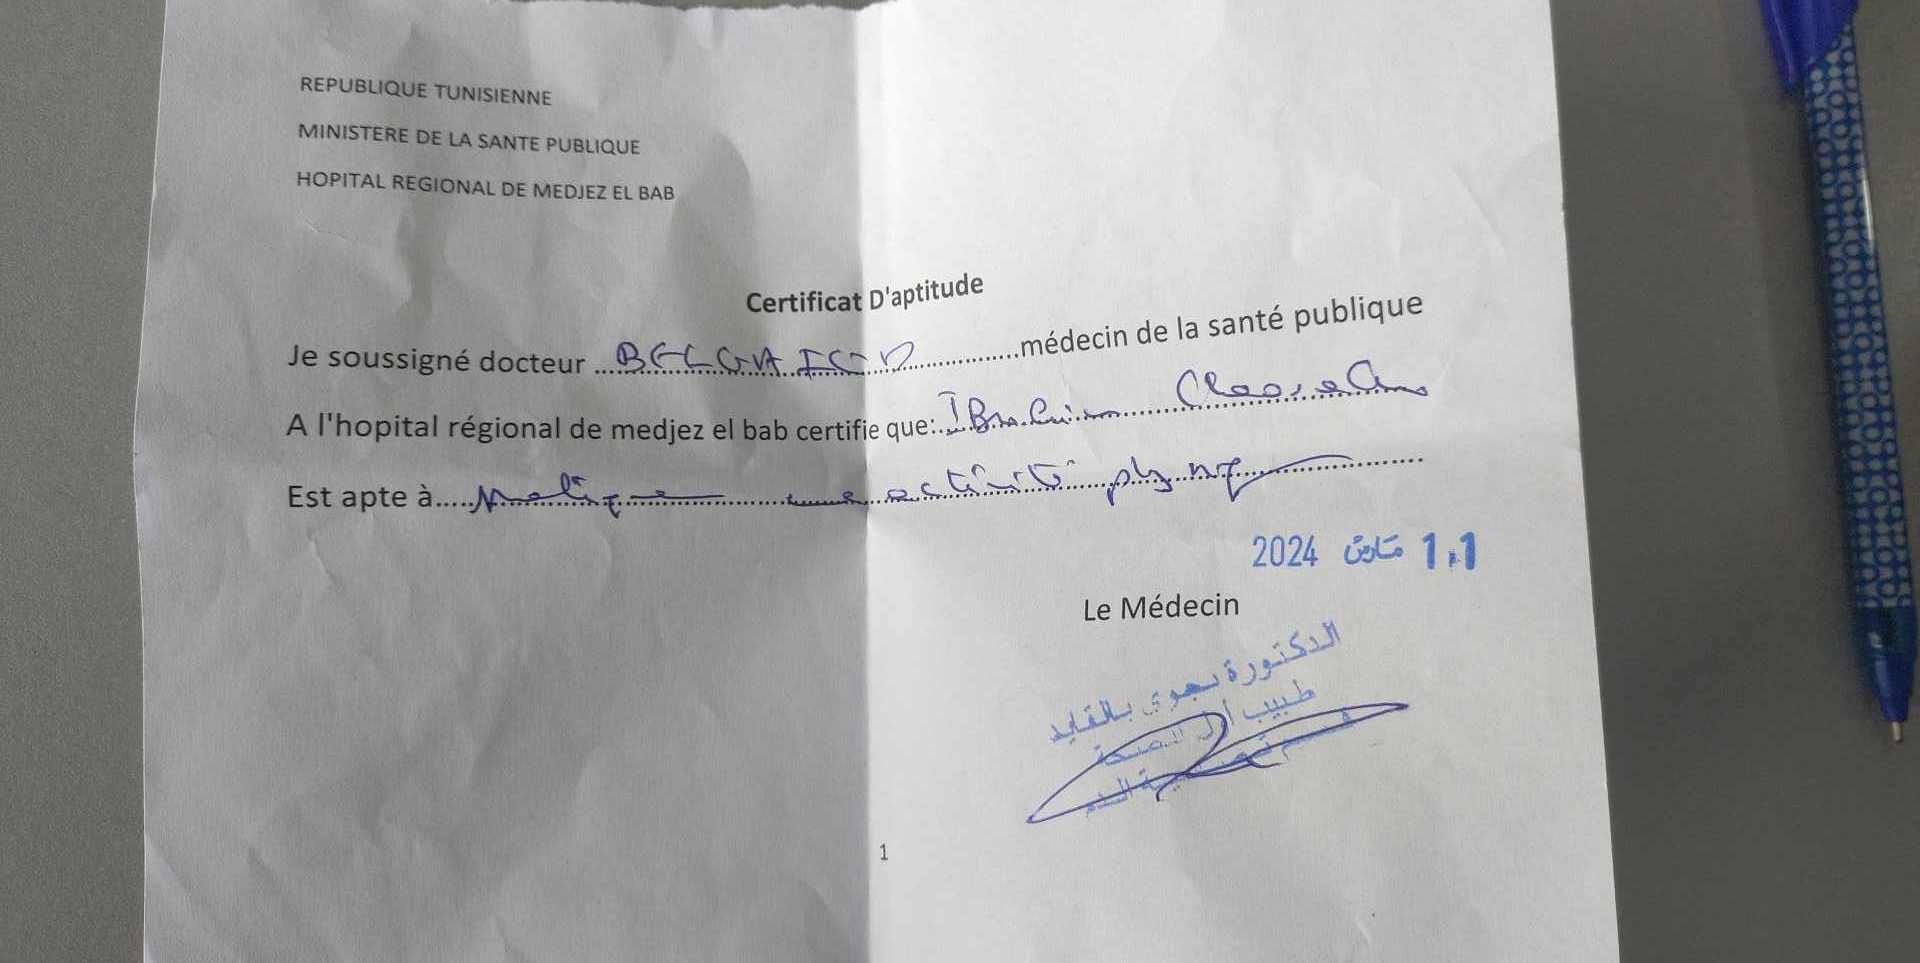 REPUBLIQUE TUNISIENNE
MINISTERE DE LA SANTE PUBLIQUE
HOPITAL REGIONAL DE MEDJEZ EL BAB
Certificat D'aptitude
Je soussigné docteur ................ médecin de la santé publique
A l'hopital régional de medjez el bab certifie que: IBrahim
Est apte à ..... une activité
2024 مارس 11
Le Médecin
الدكتورة نجوى بالقايد
طبيب أول الصحة
1